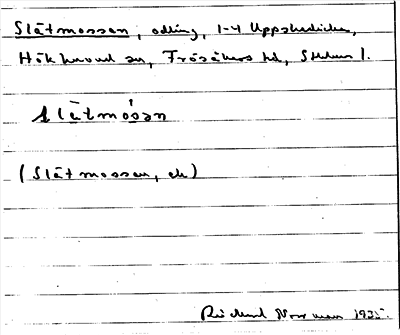 Slätmossen, odling, 1-4 Uppskedika,
Hökhuvud sn, Frösåkers hd, Sthlms l.
slätmósan
(Slätmossen, ek)
Rickard Norrman 1935.